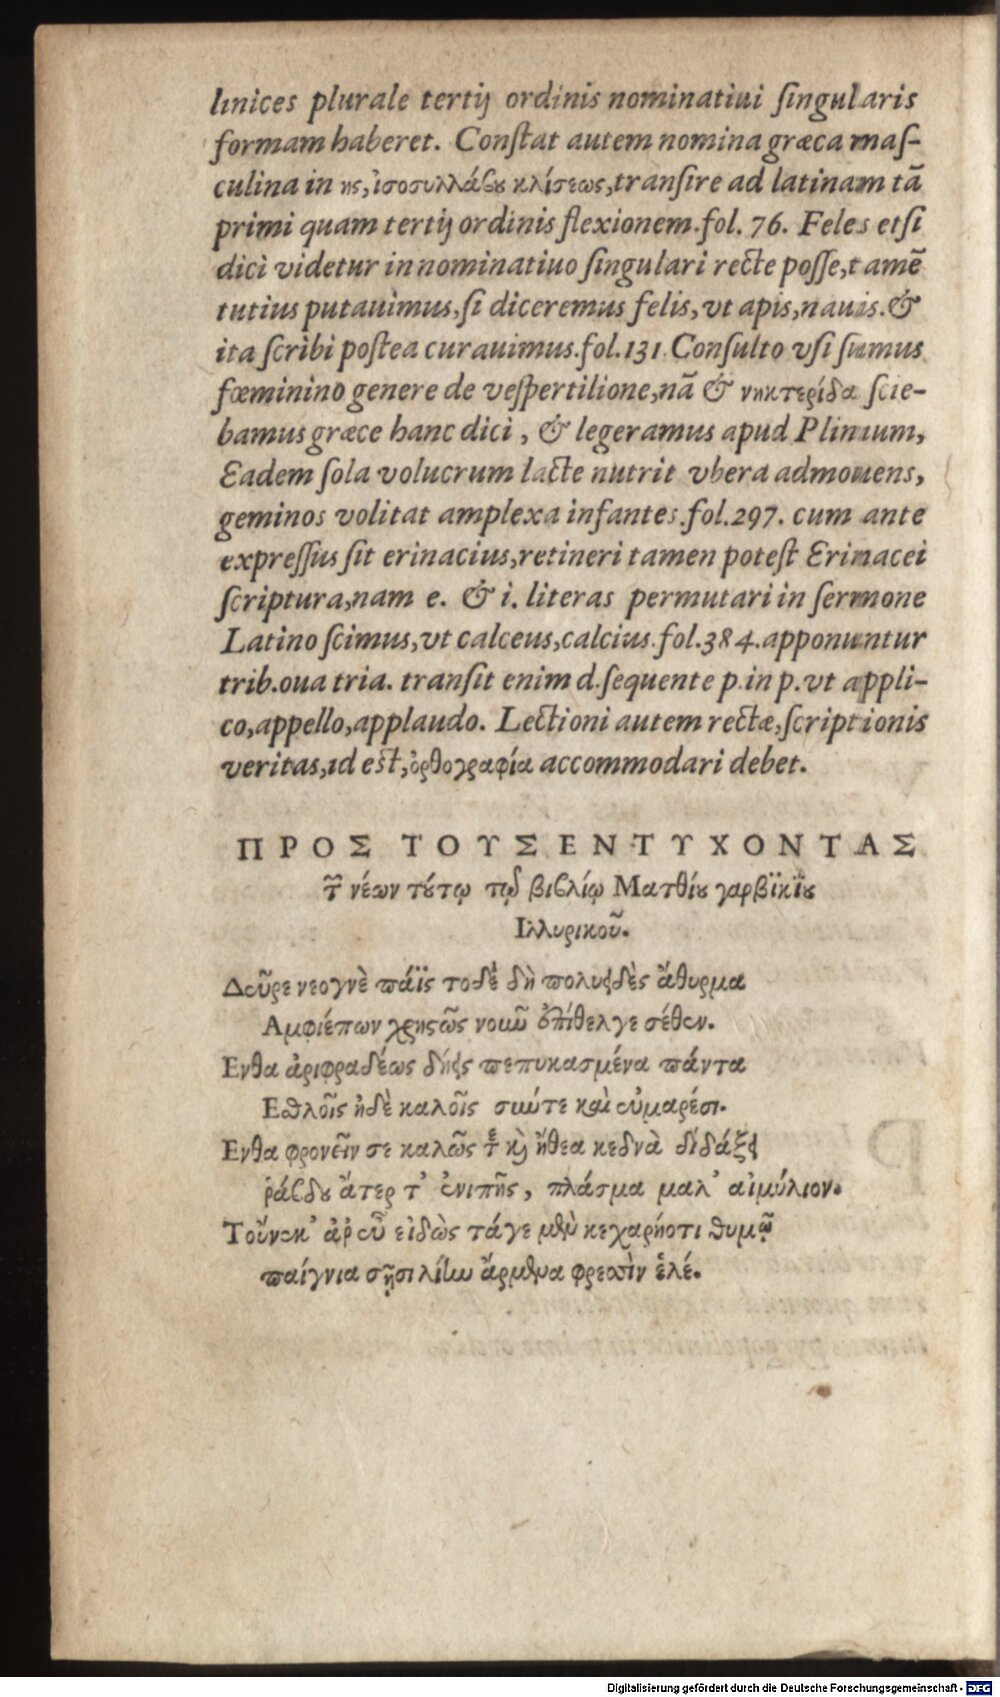 linices plurale tertij ordinis nominatiui ſingularis
formam haberet. Conſtat autem nomina græca maſ-
culina in ης, ἰσοσυλλάβου κλίσεως, tranſire ad latinam tã
primi quam tertij ordinis flexionem. fol. 76. Feles etſi
dici videtur in nominatiuo ſingulari recte poſſe, tamẽ
tutius putauimus, ſi diceremus felis, vt apis, nauis. &
ita ſcribi poſtea curauimus. fol. 131. Conſulto vſi ſumus
fœminino genere de veſpertilione, nã & νηκτερίδα ſcie-
bamus græce hanc dici, & legeramus apud Plinium,
Eadem ſola volucrum lacte nutrit vbera admouens,
geminos volitat amplexa infantes. fol. 297. cum ante
expreſſus ſit erinacius, retineri tamen poteſt Erinacei
ſcriptura, nam e. & i. literas permutari in ſermone
Latino ſcimus, vt calceus, calcius. fol. 384. apponuntur
trib. oua tria. tranſit enim d. ſequente p. in p. vt appli-
co, appello, applaudo. Lectioni autem rectæ, ſcriptionis
veritas, id eſt, ὀρθογραφία accommodari debet.
ΠΡΟΣ ΤΟΥΣ ΕΝΤΥΧΟΝΤΑΣ
τῶν νέων τούτῳ τῷ βιβλίῳ Ματθίου γαρβϊκΐου
Ιλλυρικοῦ.
Δεῦρε νεογνὲ πάϊς τοδὲ δὴ πολυειδὲς ἄθυρμα
Αμφιέπων χρηςῶς νοιῶ ἐπίθελγε σέθεν.
Ενθα ἀριφραδέως δήεις πεπυκασμένα πάντα
Εθλοῖς ἠδὲ καλοῖς σιώτε καὶ εὐμαρέσι.
Ενθα φρονεῖν σε καλῶς καὶ ἤθεα κεδνὰ διδάξει
ῥάβδου ἄτερ τ' ἐνιπῆς, πλάσμα μαλ' αἱμύλιον.
Τοὔνεκ' ἀρ εὖ εἰδὼς τάγε μὲν κεχαρηότι θυμῷ
παίγνια σῇσι λίην ἄρμενα φρεσὶν ἑλέ.
Digitalisierung gefördert durch die Deutsche Forschungsgemeinschaft - DFG